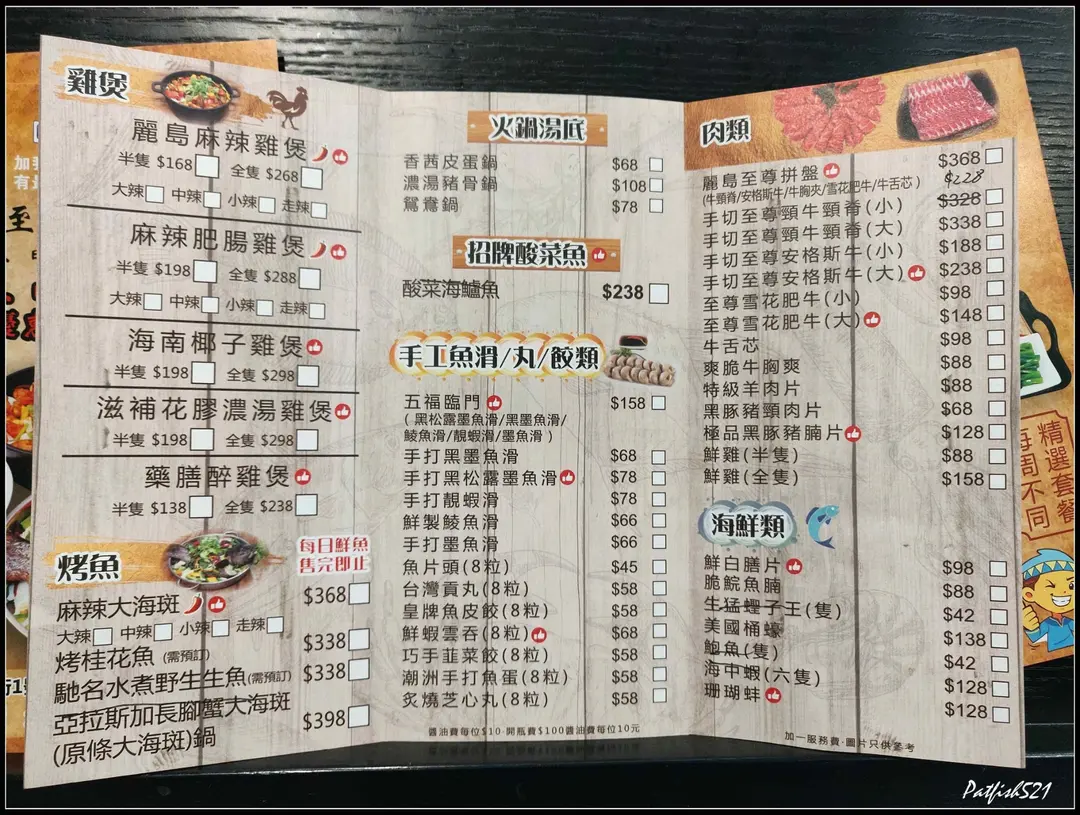 雞煲
麗島麻辣雞煲
半隻 $168 全隻 $268
大辣 中辣 小辣 走辣
麻辣肥腸雞煲
半隻 $198 全隻 $288
大辣 中辣 小辣 走辣
海南椰子雞煲
半隻 $198 全隻 $298
滋補花膠濃湯雞煲
半隻 $198 全隻 $298
藥膳醉雞煲
半隻 $138 全隻 $238
烤魚
每日鮮魚
售完即止
麻辣大海斑 $368
大辣 中辣 小辣 走辣
烤桂花魚(需預訂) $338
馳名水煮野生生魚(需預訂) $338
亞拉斯加長腳蟹大海斑
(原條大海斑)鍋 $398
火鍋湯底
香茜皮蛋鍋 $68
濃湯豬骨鍋 $108
鴛鴦鍋 $78
招牌酸菜魚
酸菜海鱸魚 $238
手工魚滑/丸/餃類
五福臨門 $158
(黑松露墨魚滑/黑墨魚滑/
鯪魚滑/靚蝦滑/墨魚滑)
手打黑墨魚滑 $68
手打黑松露墨魚滑 $78
手打靚蝦滑 $78
鮮製鯪魚滑 $66
手打墨魚滑 $66
魚片頭(8粒) $45
台灣貢丸(8粒) $58
皇牌魚皮餃(8粒) $58
鮮蝦雲吞(8粒) $68
巧手韮菜餃(8粒) $58
潮洲手打魚蛋(8粒) $58
炙燒芝心丸(8粒) $58
醬油費每位$10·開瓶費$100醬油費每位10元
肉類
麗島至尊拼盤 $368
(牛頸脊/安格斯牛/牛胸夾/雪花肥牛/牛舌芯)
$228
手切至尊頸牛頸脊(小) $328
手切至尊頸牛頸脊(大) $338
手切至尊安格斯牛(小) $188
手切至尊安格斯牛(大) $238
至尊雪花肥牛(小) $98
至尊雪花肥牛(大) $148
牛舌芯 $98
爽脆牛胸爽 $88
特級羊肉片 $88
黑豚豬頸肉片 $68
極品黑豚豬腩片 $128
鮮雞(半隻) $88
鮮雞(全隻) $158
海鮮類
鮮白膳片 $98
脆鯇魚腩 $88
生猛蟶子王(隻) $42
美國桶蠔 $138
鮑魚(隻) $42
海中蝦(六隻) $128
珊瑚蚌 $128
加一服務費·圖片只供參考
精選套餐
每周不同
Patfish521